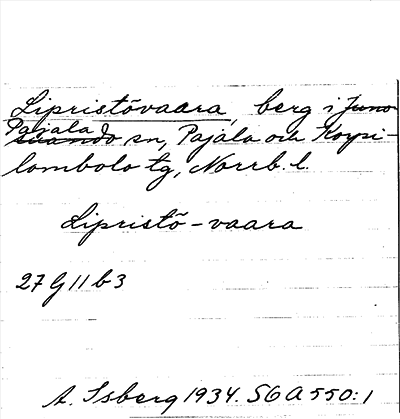 Lipristövaara, berg i Juno-
Pajala
suando sn, Pajala och Korpi-
lombolo tg, Norrb. l.
Lipristö-vaara
27 G 11 b 3
A. Isberg 1934. SGA 550:1